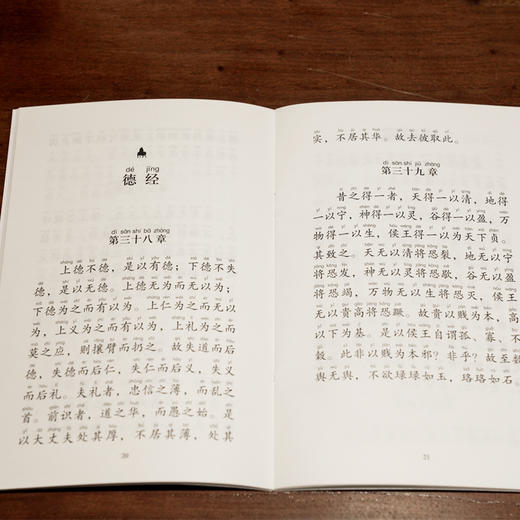 dé jīng
德经
dì sān shí bā zhāng
第三十八章
上德不德，是以有德；下德不失
德，是以无德。上德无为而无以为；
下德为之而有以为。上仁为之而无以
为，上义为之而有以为，上礼为之而
莫之应，则攘臂而扔之。故失道而后
德，失德而后仁，失仁而后义，失义
而后礼。夫礼者，忠信之薄，而乱之
首。前识者，道之华，而愚之始。是
以大丈夫处其厚，不居其薄，处其
20
实，不居其华。故去彼取此。
dì sān shí jiǔ zhāng
第三十九章
昔之得一者，天得一以清，地得
一以宁，神得一以灵，谷得一以盈，万
物得一以生，侯王得一以为天下贞。
其致之。天无以清将恐裂，地无以宁
将恐发，神无以灵将恐歇，谷无以盈
将恐竭，万物无以生将恐灭，侯王
无以贵高将恐蹶。故贵以贱为本，高
以下为基。是以侯王自谓孤、寡、不
毂。此非以贱为本邪？非乎？故至誉
舆无舆，不欲琭琭如玉，珞珞如石。
21